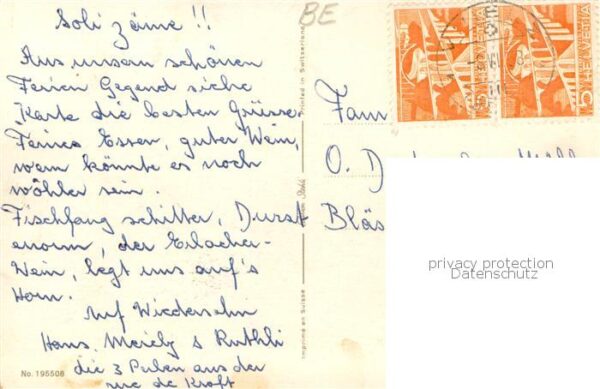 Soli zäme !!
Aus unsern schönen
Ferien Gegend siehe
Karte die besten Grüsse.
Feines Essen, guter Wein,
wem könnte es noch
wöhler sein.
Fischfang schitter, Durst
enorm, der Erlacher-
Wein, legt uns auf's
Horn.
Auf Wiedersehn
Hans, Meiely & Ruthli
die 3 aus der
rue de Kroft
No. 195506
Printed in Switzerland
Imprimé en Suisse
BE
HELVETIA
HELVETIA
Fam
O. D
Bläs
privacy protection
Datenschutz